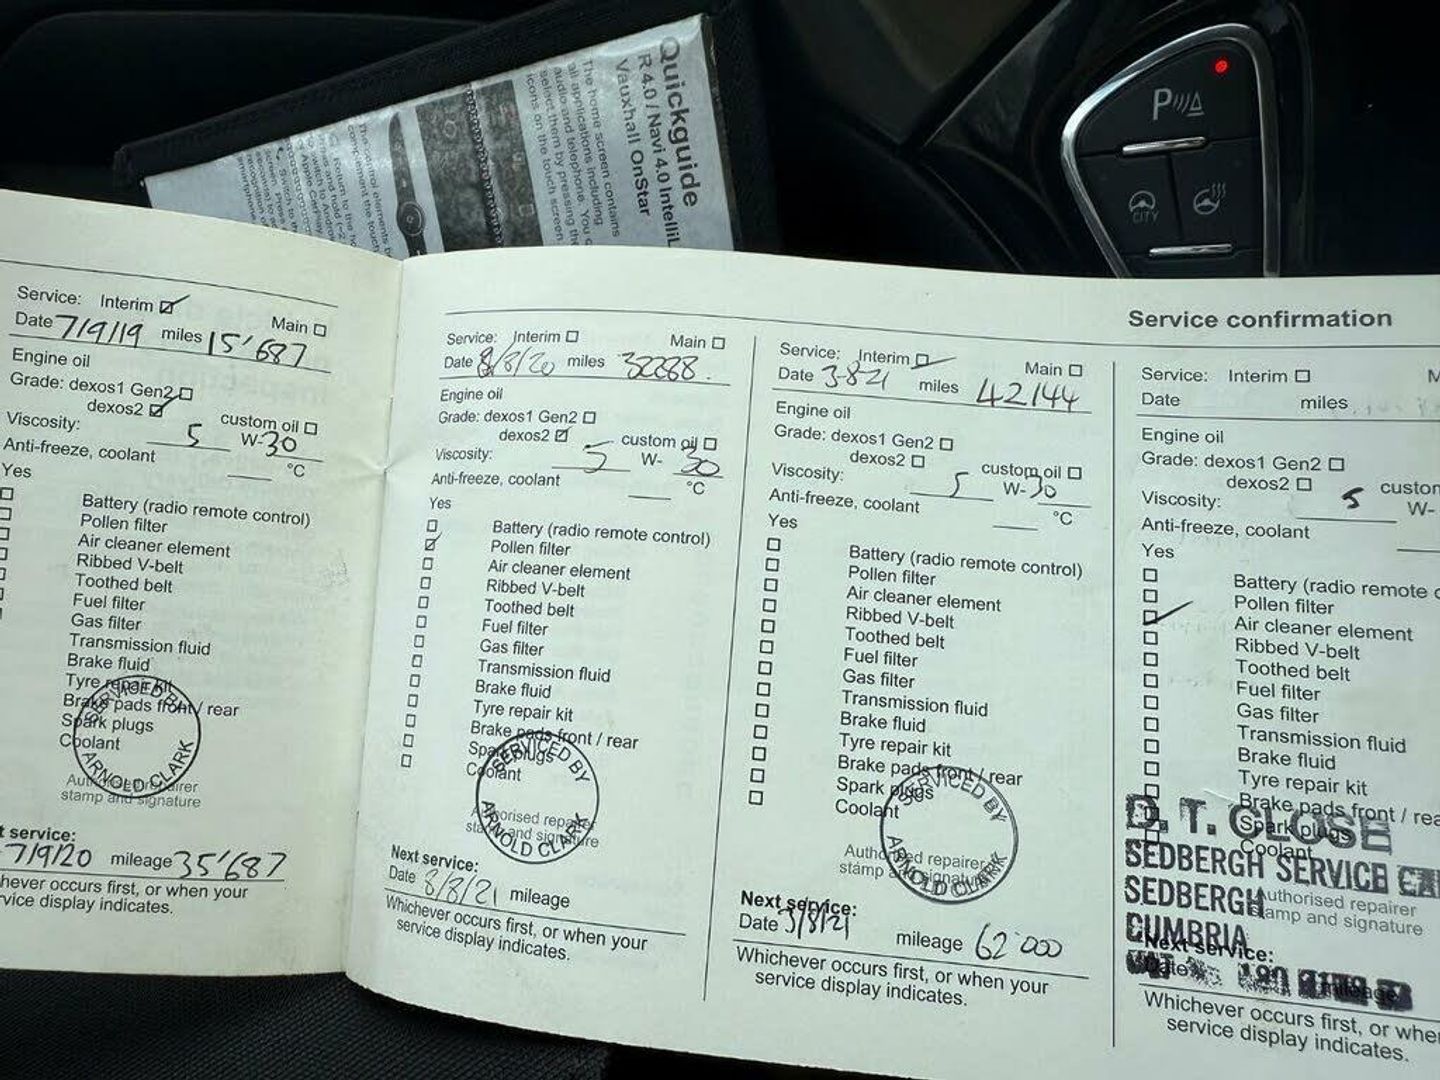 Quickguide
R 4.0 / Navi 4.0 IntelliL
Vauxhall OnStar
The home screen contains
all applications including
audio and telephone. You c
select them by pressing the
icons on the touch screen
CITY
Service: Interim Main
Date 7/9/19 miles 15'687
Engine oil
Grade: dexos1 Gen2
dexos2 custom oil
Viscosity: 5 W-30
Anti-freeze, coolant °C
Yes
Battery (radio remote control)
Pollen filter
Air cleaner element
Ribbed V-belt
Toothed belt
Fuel filter
Gas filter
Transmission fluid
Brake fluid
Tyre repair kit
Brake pads front / rear
Spark plugs
Coolant
SERVICED BY
ARNOLD CLARK
Authorised repairer
stamp and signature
t service:
7/9/20 mileage 35'687
hever occurs first, or when your
rvice display indicates.
Service: Interim Main
Date 8/8/20 miles 32288.
Engine oil
Grade: dexos1 Gen2
dexos2 custom oil
Viscosity: 5 W- 30
Anti-freeze, coolant °C
Yes
Battery (radio remote control)
Pollen filter
Air cleaner element
Ribbed V-belt
Toothed belt
Fuel filter
Gas filter
Transmission fluid
Brake fluid
Tyre repair kit
Brake pads front / rear
Spark plugs
Coolant
SERVICED BY
ARNOLD CLARK
Authorised repairer
stamp and signature
Next service:
Date 8/8/21 mileage
Whichever occurs first, or when your
service display indicates.
Service confirmation
Service: Interim Main
Date 3-8-21 miles 42144
Engine oil
Grade: dexos1 Gen2
dexos2 custom oil
Viscosity: 5 W-30
Anti-freeze, coolant °C
Yes
Battery (radio remote control)
Pollen filter
Air cleaner element
Ribbed V-belt
Toothed belt
Fuel filter
Gas filter
Transmission fluid
Brake fluid
Tyre repair kit
Brake pads front / rear
Spark plugs
Coolant
SERVICED BY
ARNOLD CLARK
Authorised repairer
stamp and signature
Next service:
Date 3/8/21 mileage 62000
Whichever occurs first, or when your
service display indicates.
Service: Interim M
Date miles
Engine oil
Grade: dexos1 Gen2
dexos2 custom
Viscosity: 5 W-
Anti-freeze, coolant
Yes
Battery (radio remote c
Pollen filter
Air cleaner element
Ribbed V-belt
Toothed belt
Fuel filter
Gas filter
Transmission fluid
Brake fluid
Tyre repair kit
Brake pads front / rea
Spark plugs
Coolant
D. T. CLOSE
SEDBERGH SERVICE
SEDBERGH
CUMBRIA
Authorised repairer
stamp and signature
Next service:
Date mileage
Whichever occurs first, or whe
service display indicates.